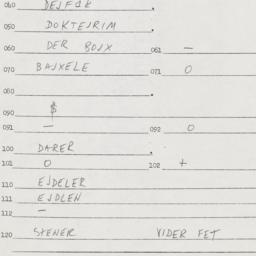 040 DEJFEK
050 DOKTEJRIM .
060 DER BOJX 061 —
070 BAJXELE 071 0
080 .
090 $
091 — 092 0
100 DARER .
101 0 102 +
110 EJDELER
111 EJDLEN
112 —
120 SHENER VIDER FET